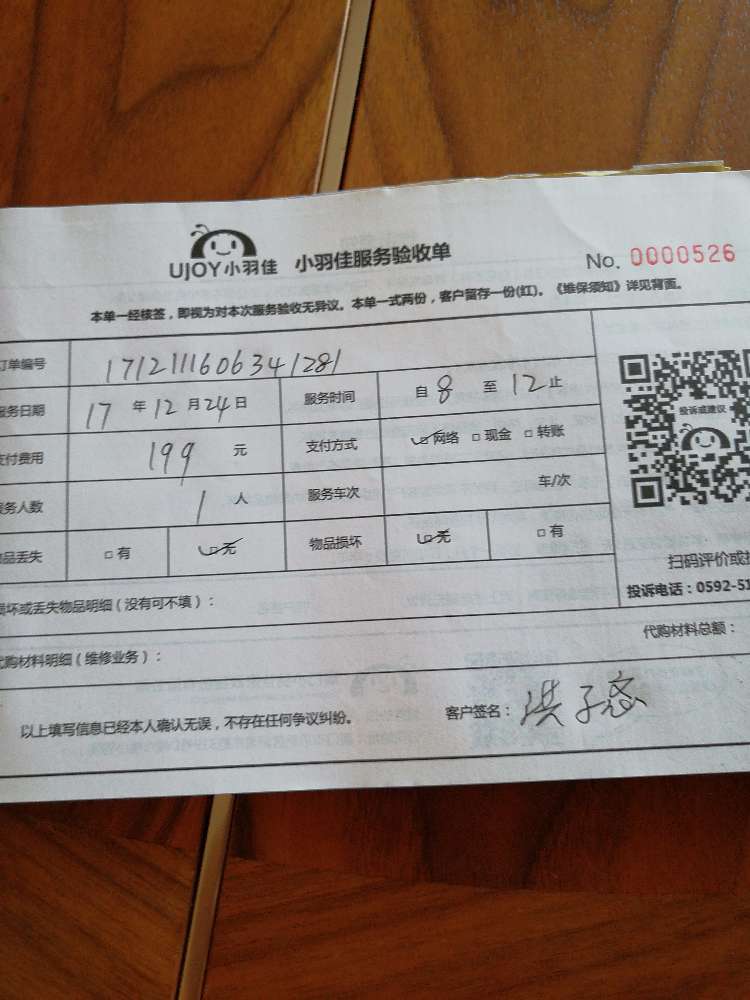 UJOY小羽佳 小羽佳服务验收单 No. 0000526
本单一经核签，即视为对本次服务验收无异议。本单一式两份，客户留存一份(红)。《维保须知》详见背面。
订单编号 1712111606341281
服务日期 17 年 12 月 24 日 服务时间 自 8 至 12 止
支付费用 199 元 支付方式 ☑网络 □现金 □转账
服务人数 1 人 服务车次 车/次
物品丢失 □有 ☑无 物品损坏 ☑无 □有
投诉或建议
扫码评价或投
投诉电话：0592-51
损坏或丢失物品明细（没有可不填）：
代购材料明细（维修业务）： 代购材料总额：
以上填写信息已经本人确认无误，不存在任何争议纠纷。 客户签名：洪子